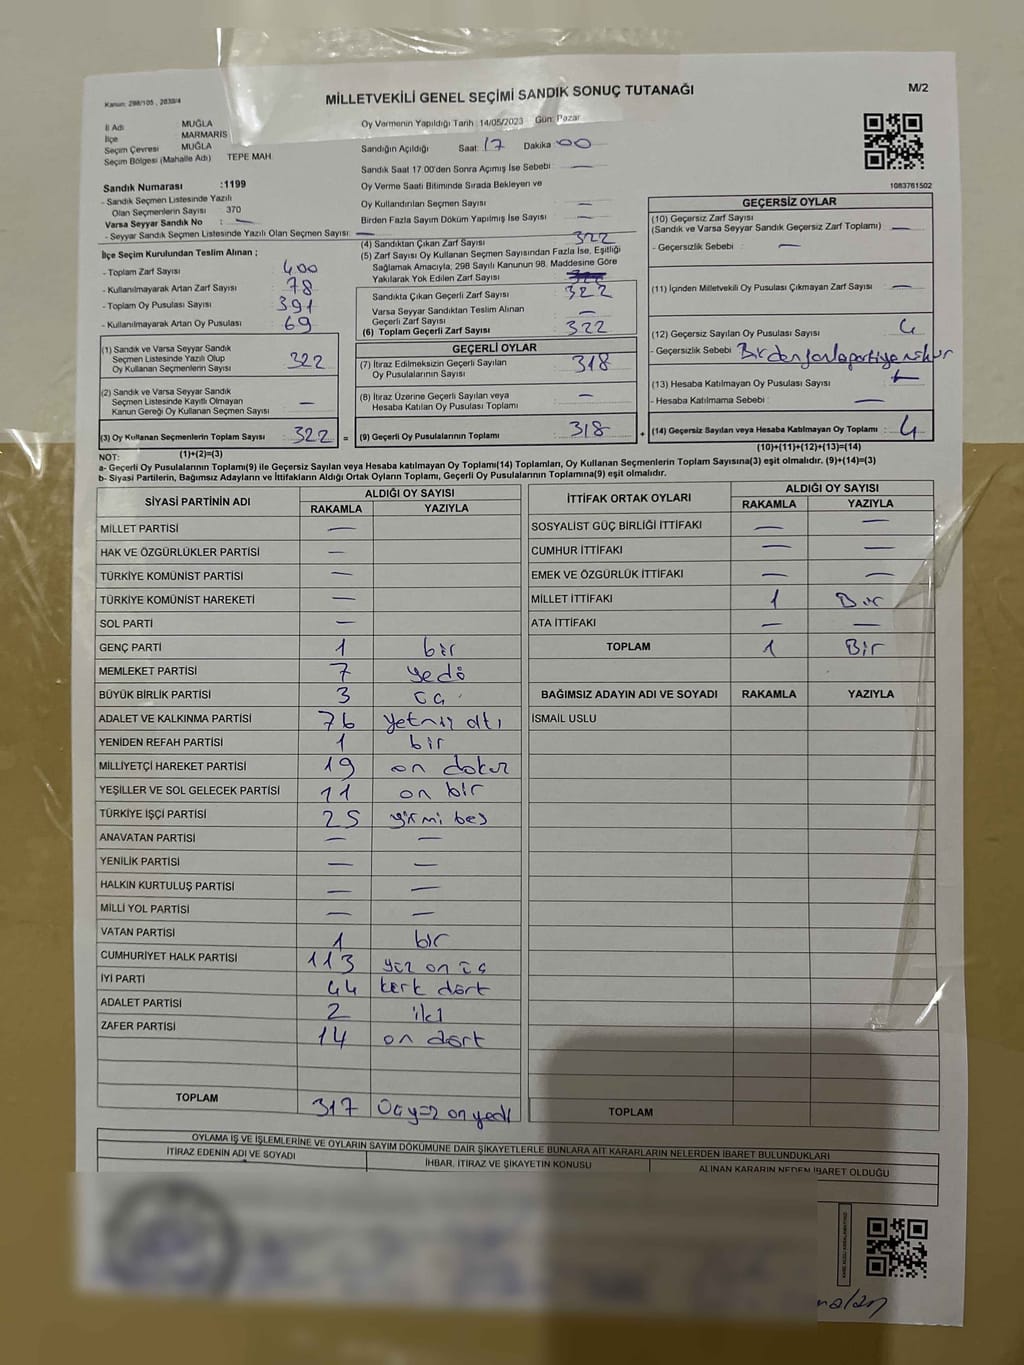 Kanun: 298/105 , 2839/4
MİLLETVEKİLİ GENEL SEÇİMİ SANDIK SONUÇ TUTANAĞI
M/2
İl Adı : MUĞLA
İlçe : MARMARİS
Seçim Çevresi : MUĞLA
Seçim Bölgesi (Mahalle Adı) TEPE MAH.
Oy Vermenin Yapıldığı Tarih: 14/05/2023 Gün: Pazar
Sandığın Açıldığı Saat: 17 Dakika 00
Sandık Saat 17:00'den Sonra Açımış İse Sebebi : —
Oy Verme Saati Bitiminde Sırada Bekleyen ve
Oy Kullandırılan Seçmen Sayısı : —
Birden Fazla Sayım Döküm Yapılmış İse Sayısı : —
1083761502
Sandık Numarası :1199
- Sandık Seçmen Listesinde Yazılı
Olan Seçmenlerin Sayısı : 370
Varsa Seyyar Sandık No : —
- Seyyar Sandık Seçmen Listesinde Yazılı Olan Seçmen Sayısı: —
İlçe Seçim Kurulundan Teslim Alınan ;
- Toplam Zarf Sayısı : 400
- Kullanılmayarak Artan Zarf Sayısı : 78
- Toplam Oy Pusulası Sayısı : 391
- Kullanılmayarak Artan Oy Pusulası : 69
(1) Sandık ve Varsa Seyyar Sandık
Seçmen Listesinde Yazılı Olup
Oy Kullanan Seçmenlerin Sayısı : 322
(2) Sandık ve Varsa Seyyar Sandık
Seçmen Listesinde Kayıtlı Olmayan
Kanun Gereği Oy Kullanan Seçmen Sayısı : —
(3) Oy Kullanan Seçmenlerin Toplam Sayısı : 322 =
(1)+(2)=(3)
(4) Sandıktan Çıkan Zarf Sayısı : 322
(5) Zarf Sayısı Oy Kullanan Seçmen Sayısından Fazla İse, Eşitliği
Sağlamak Amacıyla, 298 Sayılı Kanunun 98. Maddesine Göre
Yakılarak Yok Edilen Zarf Sayısı :
Sandıkta Çıkan Geçerli Zarf Sayısı : 322
Varsa Seyyar Sandıktan Teslim Alınan
Geçerli Zarf Sayısı : —
(6) Toplam Geçerli Zarf Sayısı : 322
GEÇERLİ OYLAR
(7) İtiraz Edilmeksizin Geçerli Sayılan
Oy Pusulalarının Sayısı : 318
(8) İtiraz Üzerine Geçerli Sayılan veya
Hesaba Katılan Oy Pusulası Toplamı : —
(9) Geçerli Oy Pusulalarının Toplamı : 318 +
GEÇERSİZ OYLAR
(10) Geçersiz Zarf Sayısı
(Sandık ve Varsa Seyyar Sandık Geçersiz Zarf Toplamı) : —
- Geçersizlik Sebebi : —
(11) İçinden Milletvekili Oy Pusulası Çıkmayan Zarf Sayısı : —
(12) Geçersiz Sayılan Oy Pusulası Sayısı : 4
- Geçersizlik Sebebi :
(13) Hesaba Katılmayan Oy Pusulası Sayısı :
- Hesaba Katılmama Sebebi : —
(14) Geçersiz Sayılan veya Hesaba Katılmayan Oy Toplamı : 4
(10)+(11)+(12)+(13)=(14)
NOT:
a- Geçerli Oy Pusulalarının Toplamı(9) ile Geçersiz Sayılan veya Hesaba katılmayan Oy Toplamı(14) Toplamları, Oy Kullanan Seçmenlerin Toplam Sayısına(3) eşit olmalıdır. (9)+(14)=(3)
b- Siyasi Partilerin, Bağımsız Adayların ve İttifakların Aldığı Ortak Oyların Toplamı, Geçerli Oy Pusulalarının Toplamına(9) eşit olmalıdır.
SİYASİ PARTİNİN ADI ALDIĞI OY SAYISI
RAKAMLA YAZIYLA
MİLLET PARTİSİ —
HAK VE ÖZGÜRLÜKLER PARTİSİ —
TÜRKİYE KOMÜNİST PARTİSİ —
TÜRKİYE KOMÜNİST HAREKETİ —
SOL PARTİ —
GENÇ PARTİ 1 bir
MEMLEKET PARTİSİ 7 yedi
BÜYÜK BİRLİK PARTİSİ 3 üç
ADALET VE KALKINMA PARTİSİ 76 yetmiş altı
YENİDEN REFAH PARTİSİ 1 bir
MİLLİYETÇİ HAREKET PARTİSİ 19 on dokuz
YEŞİLLER VE SOL GELECEK PARTİSİ 11 on bir
TÜRKİYE İŞÇİ PARTİSİ 25 yirmi beş
ANAVATAN PARTİSİ — —
YENİLİK PARTİSİ — —
HALKIN KURTULUŞ PARTİSİ — —
MİLLİ YOL PARTİSİ — —
VATAN PARTİSİ 1 bir
CUMHURİYET HALK PARTİSİ 113 yüz on üç
İYİ PARTİ 44 kırk dört
ADALET PARTİSİ 2 iki
ZAFER PARTİSİ 14 on dört
TOPLAM 317 Üçyüz on yedi
İTTİFAK ORTAK OYLARI ALDIĞI OY SAYISI
RAKAMLA YAZIYLA
SOSYALİST GÜÇ BİRLİĞİ İTTİFAKI — —
CUMHUR İTTİFAKI — —
EMEK VE ÖZGÜRLÜK İTTİFAKI — —
MİLLET İTTİFAKI 1 Bir
ATA İTTİFAKI — —
TOPLAM 1 Bir
BAĞIMSIZ ADAYIN ADI VE SOYADI RAKAMLA YAZIYLA
İSMAİL USLU
TOPLAM
OYLAMA İŞ VE İŞLEMLERİNE VE OYLARIN SAYIM DÖKÜMÜNE DAİR ŞİKAYETLERLE BUNLARA AİT KARARLARIN NELERDEN İBARET BULUNDUKLARI
İTİRAZ EDENİN ADI VE SOYADI İHBAR, İTİRAZ VE ŞİKAYETİN KONUSU ALINAN KARARIN NEDEN İBARET OLDUĞU